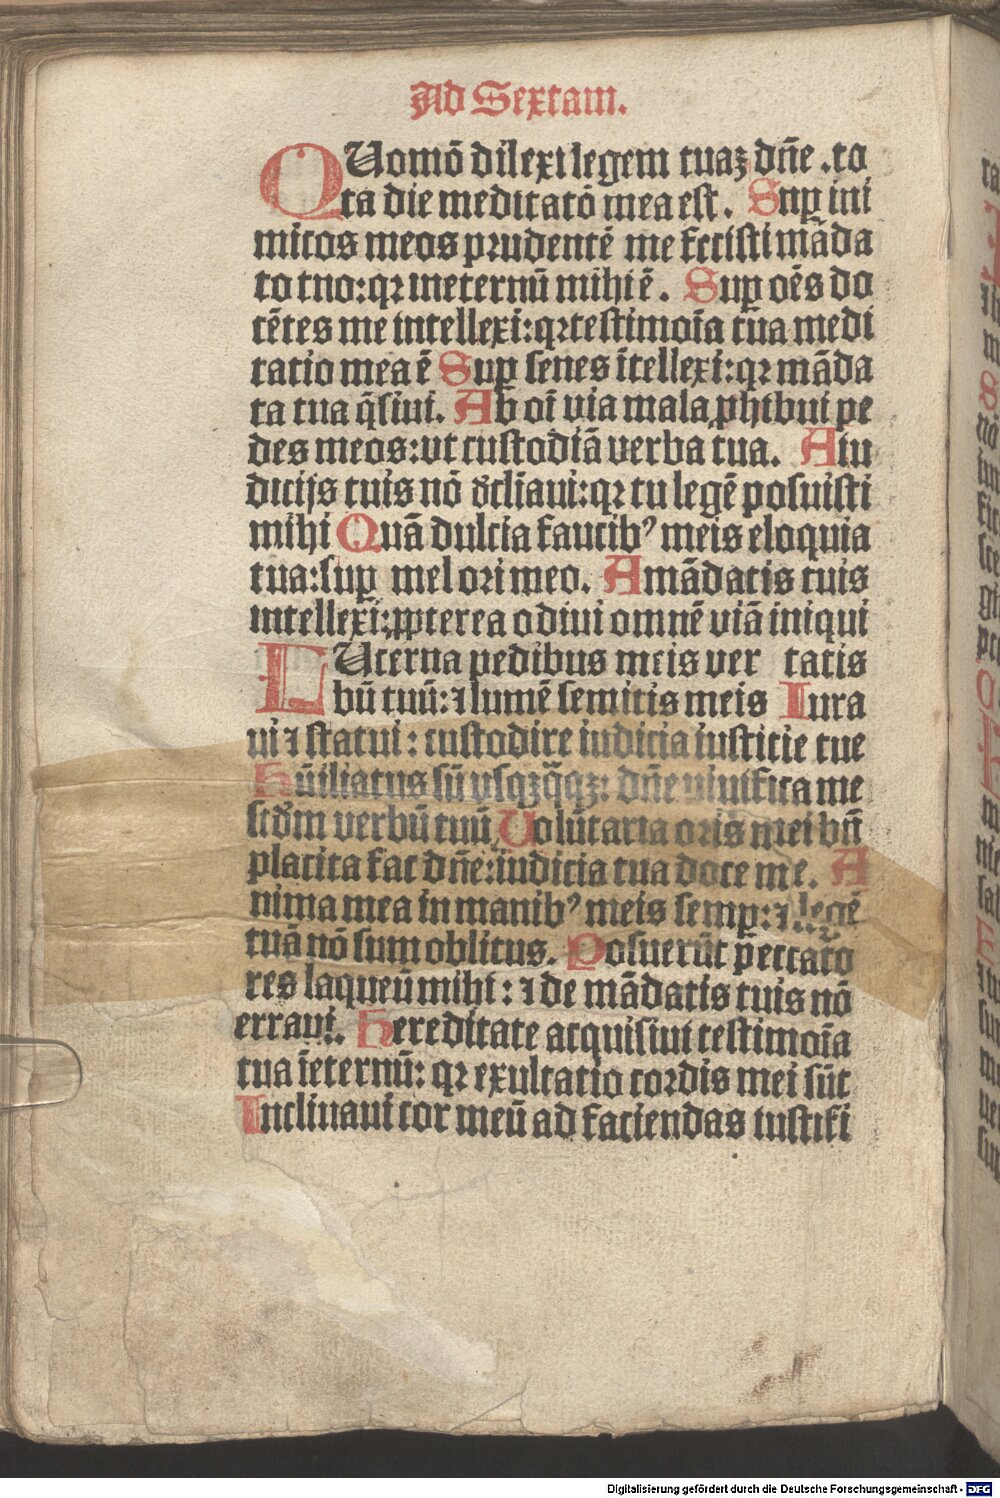 Ad Sextam.
QUomō dilexi legem tuaꝫ dn̄e .to
ta die meditatō mea est. Suꝑ ini
micos meos prudentē me fecisti mādа
to tuo: qꝛ ineternū mihi ē. Suꝑ oēs do
cētes me intellexi: qꝛ testimoīa tūa medi
tatio mea ē Suꝑ senes ītellexi: qꝛ māda
ta tua q̄siui. Ab oī via mala ꝓhibui pe
des meos: vt custodiā verba tua. A iu
dicijs tuis nō ꝺcliaui: qꝛ tu legē posuisti
mihi Quā dulcia faucibꝰ meis eloquia
tua: suꝑ mel ori meo. A mādatis tuis
intellexi: ꝓpterea odiui omnē viā iniqui
LUcerna pedibus meis ver tatis
bū tuū: ⁊ lumē semitis meis Iura
ui ⁊ statui: custodire iudicia iusticie tue
Hūiliatus sū vsqꝫq̄qꝫ: dn̄e viuifica me
scd̄m verbū tuū Uolūtaria oris mei bn̄
placita fac dn̄e: iudicia tua doce me. A
nima mea in manibꝰ meis semꝑ: ⁊ legē
tuā nō sum oblitus. Posuerūt peccato
res laqueū mihi: ⁊ de mādatis tuis nō
erraui. Hereditate acquisiui testimoīa
tua īeternū: qꝛ exultatio cordis mei sūt
Inclinaui cor meū ad faciendas iustifi
Digitalisierung gefördert durch die Deutsche Forschungsgemeinschaft - DFG